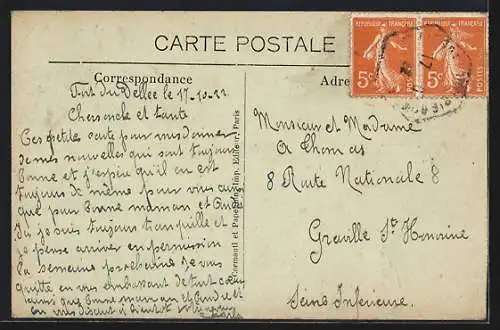 CARTE POSTALE
Correspondance
Adre
REPUBLIQUE FRANÇAISE
5c
POSTES
5c
POSTES
Fort du le 17-10-22
Cher oncle et tante
Ces petite carte pour vous donner
de mes nouvelles qui sont toujours
bonne et j'espère qu'il en est
toujours de même pour vous
que pour bonne maman et
Ici je suis toujours tranquille et
je pense arriver en permission
la semaine prochaine je vous
quitte en vous embrassant de tout coeur
ainsi que bonne maman et
en vous disant à bientôt
Edituer, Paris
Monsieur et Madame
Thomas
8 Route Nationale 8
Graville Ste Honorine
Seine Inférieure.